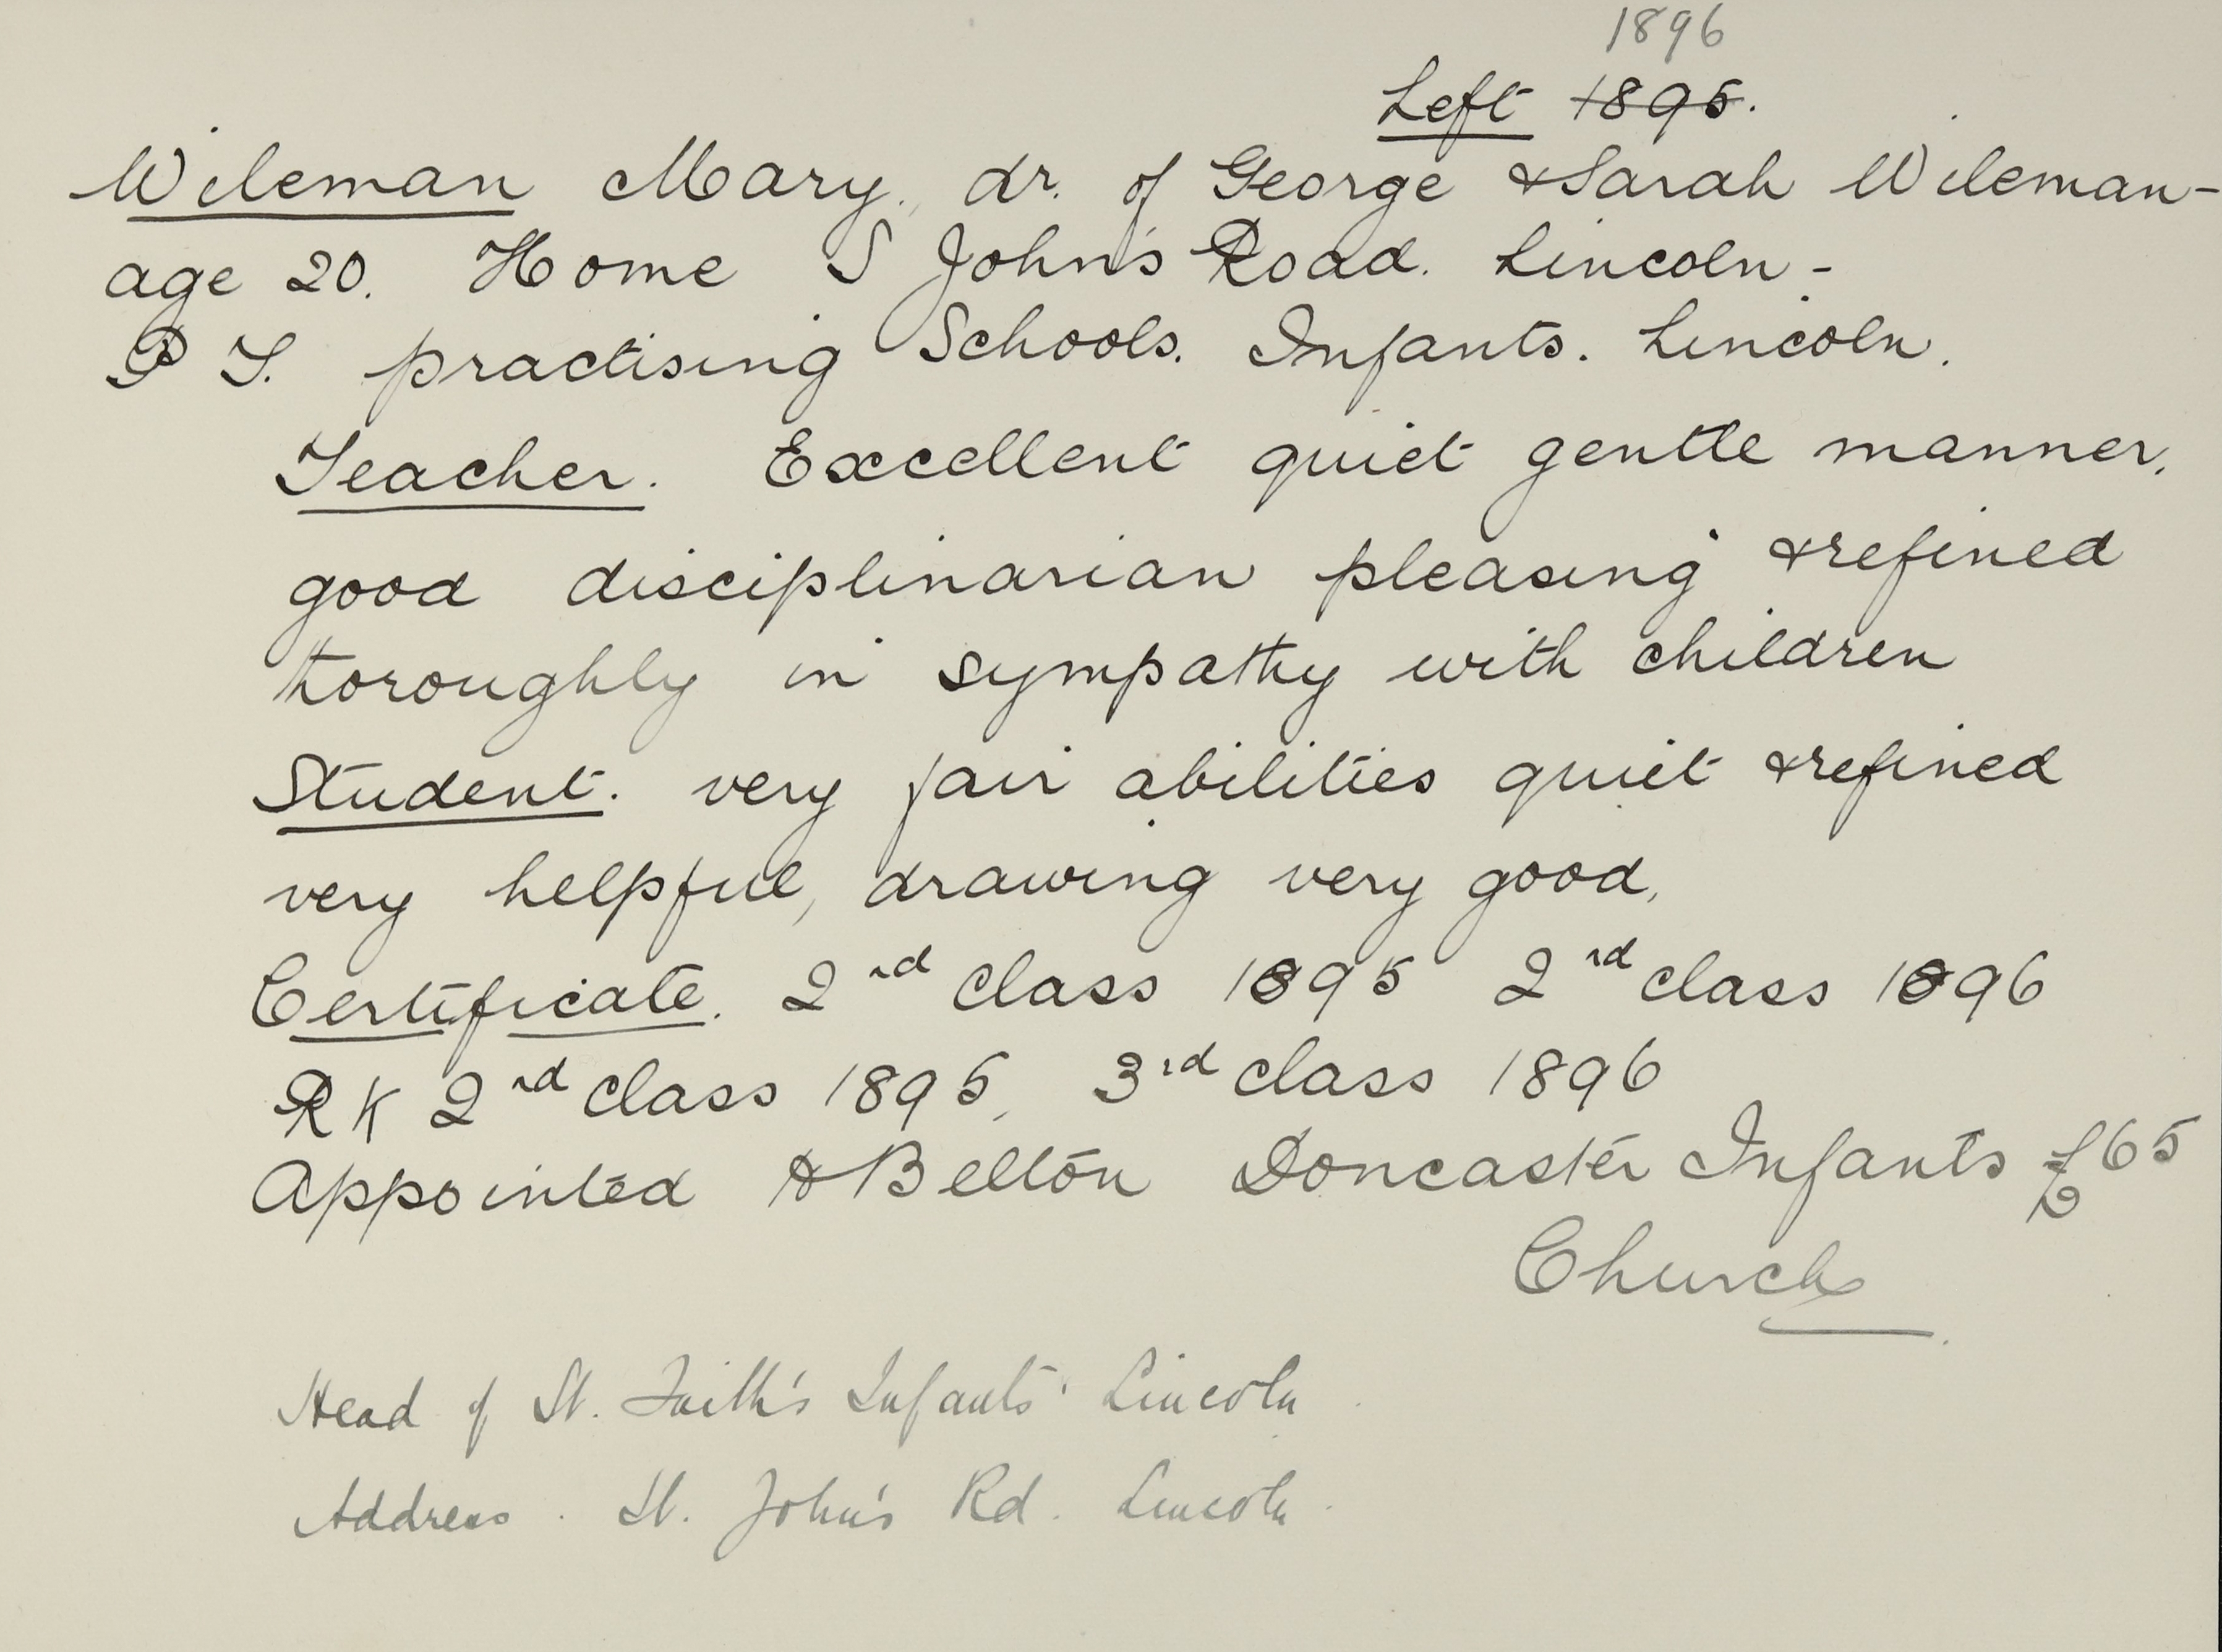 1896
Left 1895.
Wileman Mary. dr. of George & Sarah Wileman-
age 20. Home S John's Road. Lincoln-
P T. practising Schools. Infants. Lincoln.
Teacher. Excellent quiet gentle manner,
good disciplinarian pleasing & refined
thoroughly in sympathy with children
Student. very fair abilities quiet & refined
very helpful, drawing very good,
Certificate. 2nd class 1895 2nd class 1896
R K 2nd class 1895, 3rd class 1896
Appointed Belton Doncaster Infants £65
Church
Head of St. Faith's Infants' Lincoln
Address. St. John's Rd. Lincoln.